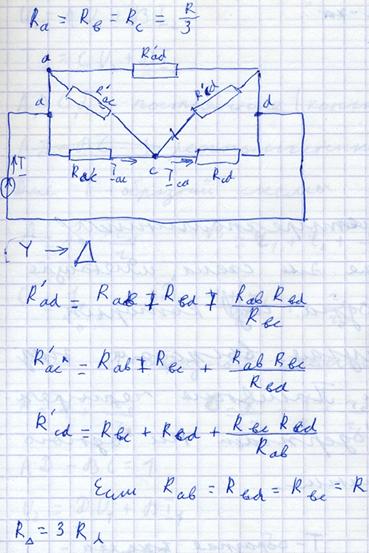 Ra = Rв = Rc = R/3
R'ad
a
R'ac
R'cd
a
d
I
Rac
Iac
c
Icd
Rcd
Y → Δ
R'ad = Rab + Rbd + Rab Rbd / Rbc
R'ac = Rab + Rbc + Rab Rbc / Rbd
R'cd = Rbc + Rbd + Rbc Rbd / Rab
Если Rab = Rbd = Rbc = R
RΔ = 3 Rλ